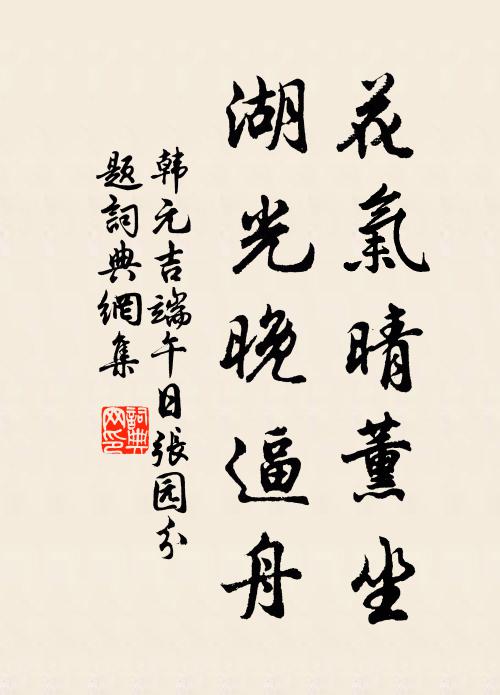 花氣晴薰坐
湖光晚逼舟
韩元吉端午日張园分
题詞典網集
詞典
网印